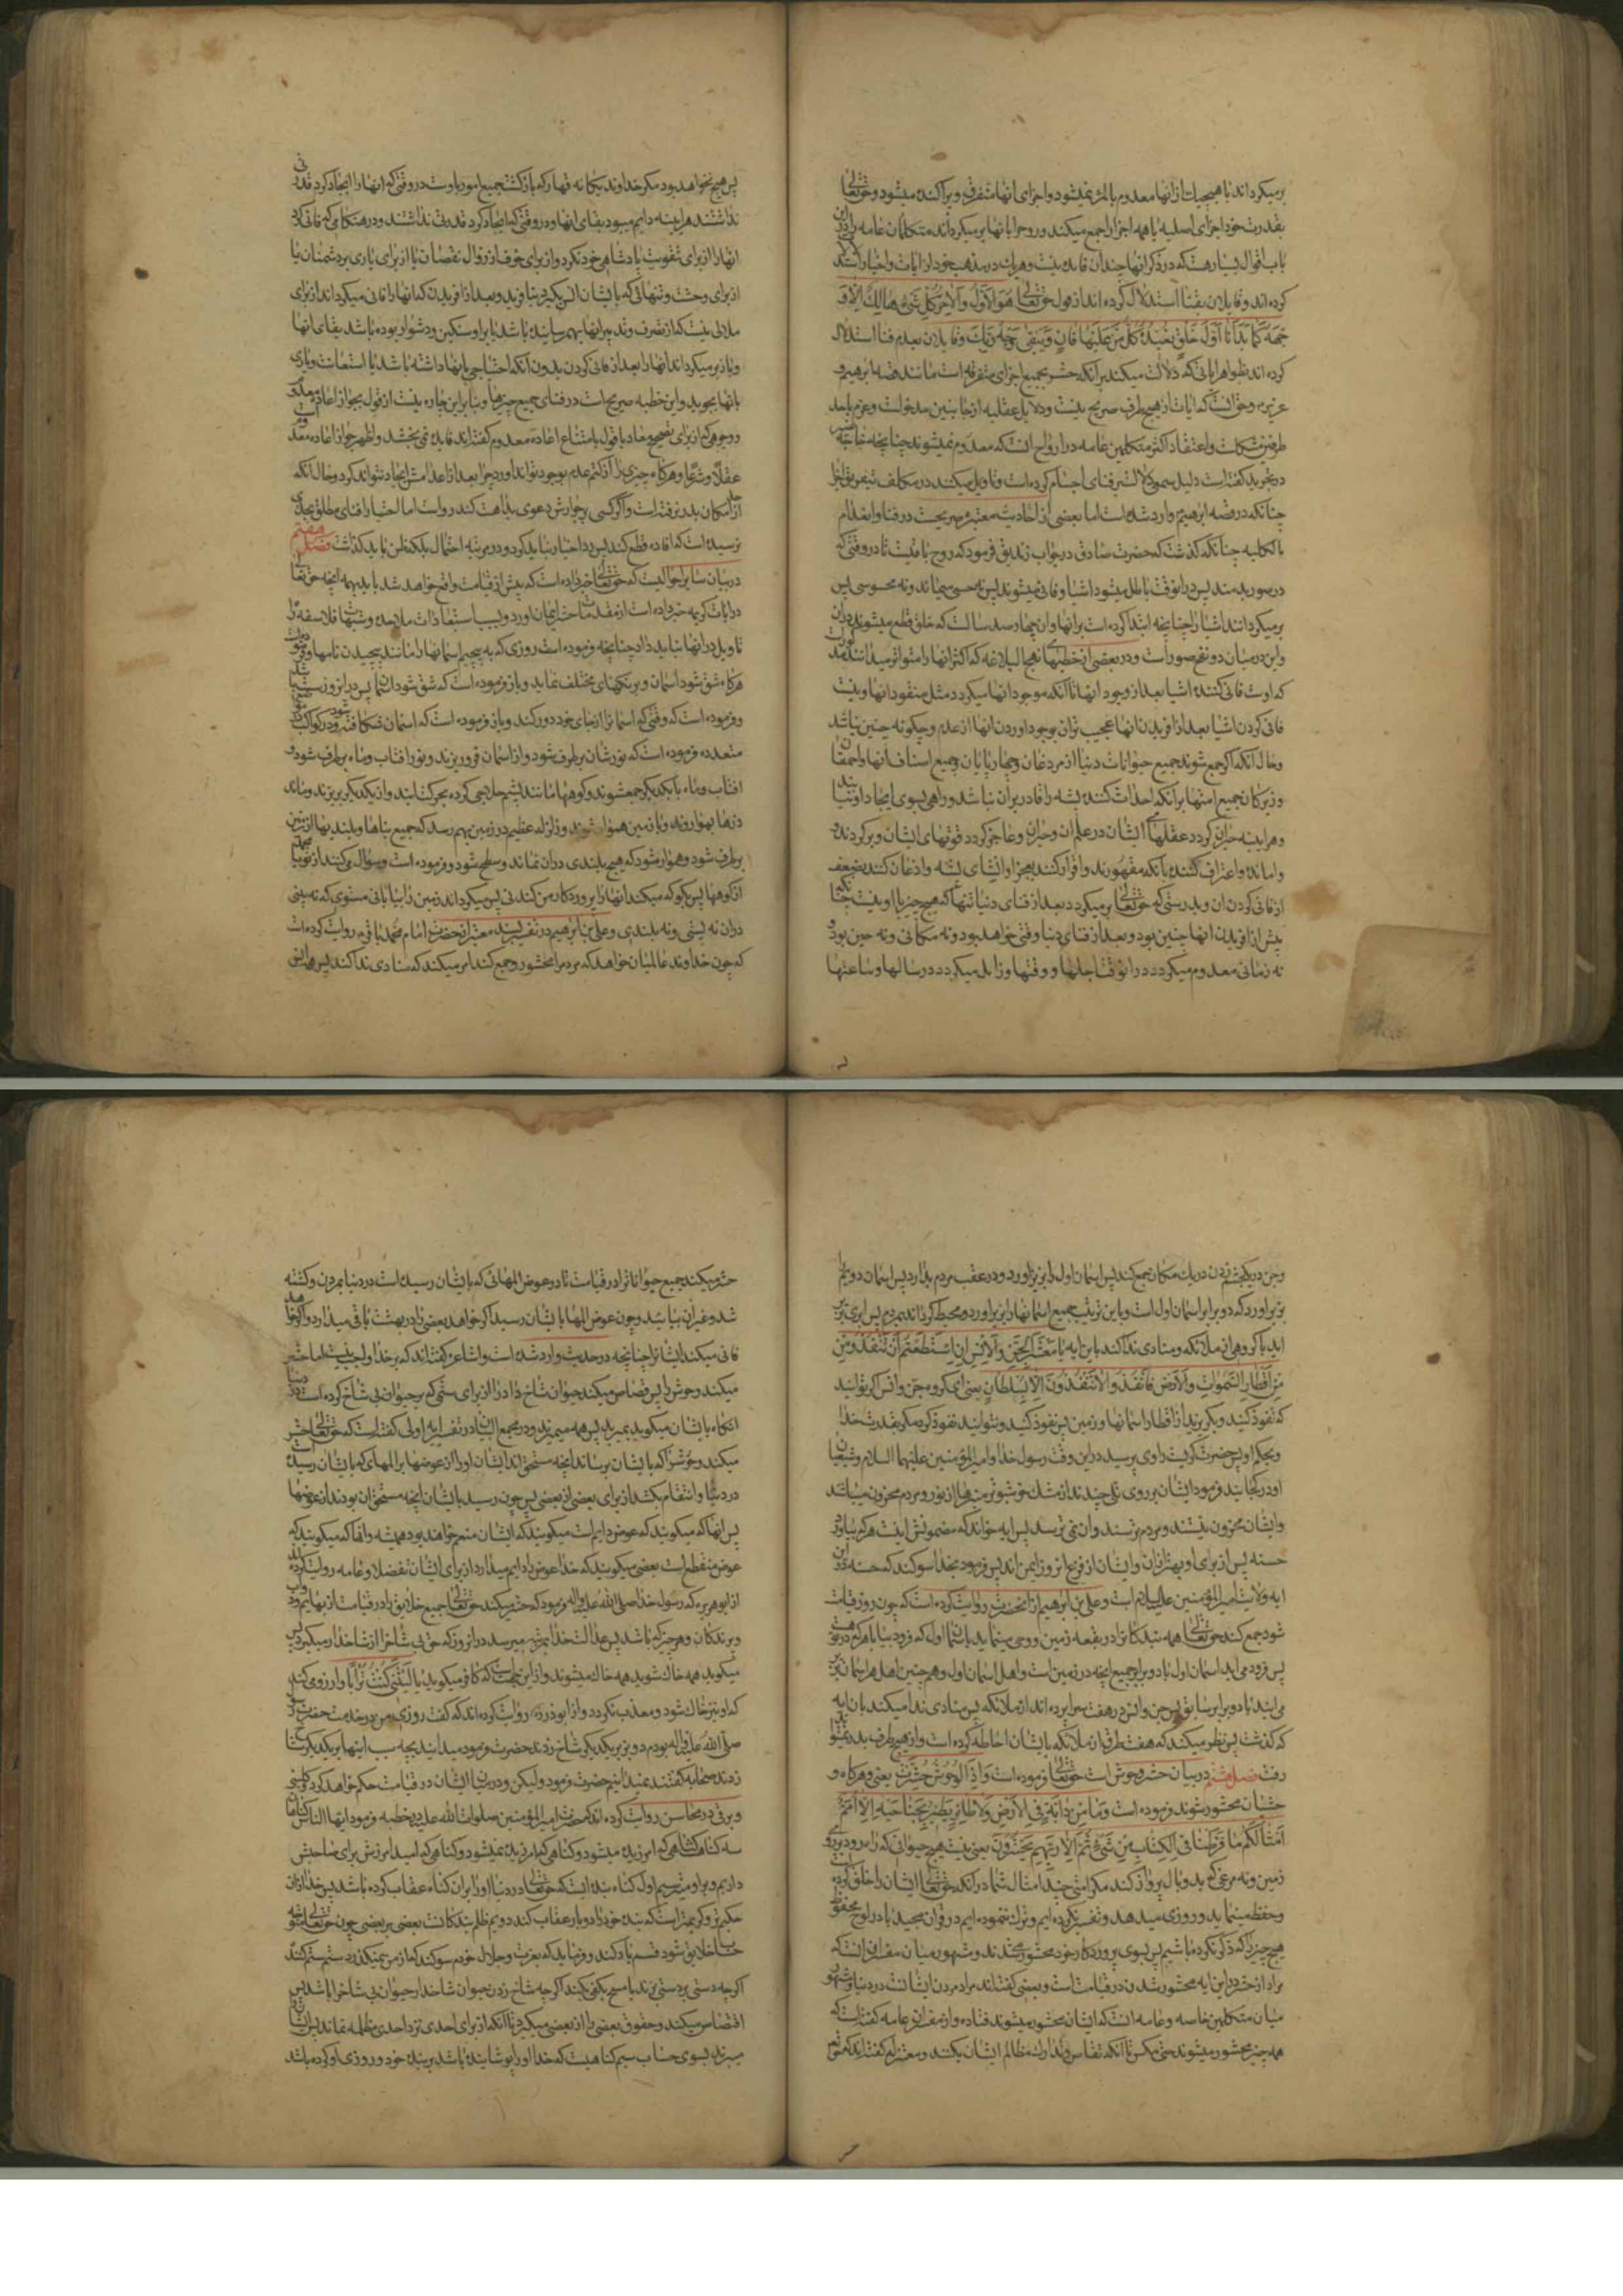 برمیکرداند یا هیچیک از انها معدوم بالمره نمیشود و اجزای انها متفرق و پراکنده میشود و حق تعالی
بقدرت خود اجزای اصلیه یا همه اجزا را جمع میکند و روح را بانها برمیکرداند متکلمان عامه را در این
باب اقوال بسیار هست که در ذکر انها چندان فایده نیست و هر یک در مذهب خود از ایات و اخبار استدلال
کرده اند و قایلان بفنا استدلال کرده اند از قول حق تعالی هو الاول والاخر کل شیء هالک الا و
جهه کما بدأنا اول خلق نعیده کل من علیها فان ویبقی وجه ربک و قایلان بعدم فنا استدلال
کرده اند بظواهر ایاتی که دلالت میکند بر آنکه حشر بجمع اجزای متفرقه است مانند قصه ابرهیم و
عزیر و حق انست که ایات از هیچ طرف صریح نیست و دلایل عقلیه از جانبین مدخولست و جزم باحد
طرفین مشکلست و اعتقاد اکثر متکلمین عامه در ارواح انست که معدوم نمیشوند چنانچه خاجه نصیر
در تجرید کفته است دلیل سمعی دلالت بر فنای اجسام کرده است و تاویل میکنند در مکلف بتفریق اجزا
چنانکه در قصه ابرهیم وارد شده است اما بعضی از احادیث معتبره صریحست در فنا و انعدام
بالکلیه چنانکه کذشت که حضرت صادق در جواب زندیق فرمود که روح باقیست تا در وقتی که
در صور بدمند پس در انوقت باطل میشود اشیا و فانی میشوند پس نه جسمی میماند و نه محسوسی پس
برمیکردانند اشیا را چنانچه ابتدا کرده است برانها و ان چهار صد سالست که خلق قطع میشوند در ان
و این در میان دو نفخ صور است و در بعضی از خطبهای نهج البلاغه که اکثر انها را متواتر میدانند مذکورست
که اوست فانی کننده اشیا بعد از وجود انها تا آنکه موجود انها میکردد مثل مفقود انها و نیست
فانی کردن اشیا بعد از افریدن انها عجیب تر از بوجود اوردن انها از عدم و چکونه چنین نباشد
و حال آنکه اکر جمع شوند جمیع حیوانات دنیا از مرغان و چهارپایان و جمیع اصناف انها و احمقان
و زیرکان جمیع امتها بر آنکه احداث کنند پشه را قادر بران نباشد و راهی بسوی ایجاد او نیابند
و هراینه حیران کردد عقلهای ایشان در علم ان و حیران و عاجز کردد قوتهای ایشان و برکردند
وامانده و اعتراف کننده بآنکه مقهورند و اقرار کنند بعجز از انشای پشه و اذعان کنند بضعف
از فانی کردن ان و بدرستی که حق تعالی برمیکردد بعد از فنای دنیا تنها که هیچ چیز با او نیست چنانکه
پیش از افریدن انها چنین بود و بعد از فنای دنیا وقتی خواهد بود و نه مکانی و نه حین بود و
نه زمانی معدوم میکردد در انوقت اجلها و وقتها و زایل میکردد در سالها و ساعتها
پس هیچ نخواهد بود مکر خداوند یکانه قهار که بازکشت جمیع امور باوست در وقتی که انها را ایجاد کرد قدرتی
نداشتند هراینه دایم میبود بقای انها و در وقتی که ایجاد کرد قدرتی نداشتند و در هنکامی که فانی کرد
انها را از برای تقویت پادشاهی خود نکرد و از برای خوف از زوال نقصان یا از برای یاری بر دشمنان یا
از برای وحشت و تنهائی که بایشان انس بکیرد نیافرید و بعد از افریدن که انها را فانی میکرداند از برای
ملالی نیست که از تصرف و تدبیر انها بهم رسانیده باشد یا بر او سنکین و دشوار بوده باشد بقای انها
و باز برمیکرداند انها را بعد از فانی کردن بدون آنکه احتیاجی بانها داشته باشد یا استعانت و یاری
بانها بجوید و این خطبه صریحست در فنای جمیع چیزها و بنابراین چاره نیست از قول بجواز اعاده معدوم
و وجوهی که از برای تصحیح معاد با قول بامتناع اعاده معدوم کفته اند فایده نمی بخشد و اظهر جواز اعاده معدوم است
عقلا و شرعا و هرکاه چیزی را از کتم عدم بوجود تواند اورد چرا بعد از اعدامش ایجاد نتواند کرد و حال آنکه
از امکان بدر نرفته است و اکر کسی بر جوازش دعوی بداهت کند رواست اما اخبار فنای مطلق بحدی
نرسیده است که افاده قطع کند پس رد اخبار نباید کرد و در مرتبه احتمال بلکه ظن باید کذاشت فصل هفتم
در بیان سایر احوالیست که حق تعالی خبر داده است که پیش از قیامت واقع خواهد شد باید بهمه انچه حق تعالی
در ایات کریمه خبر داده است از مقدمات حشر ایمان اورد و بسبب استبعادات ملاحده و شبهای فلاسفه را
تاویل در انها نباید داد چنانچه فرموده است روزی که به پیچیم اسمانها را مانند پیچیدن نامها و فرموده است
هرکاه شق شود اسمان و برنکهای مختلف نماید و باز فرموده است که شق شود اسمان پس در انروز سست باشد
و فرموده است که وقتی که اسمانرا از جای خود دور کند و باز فرموده است که اسمان شکافته شود و در کواکب
متعدده فرموده است که نورشان برطرف شود و از اسمان فرو ریزند و نور افتاب و ماه برطرف شود و
افتاب و ماه با یکدیکر جمع شوند و کوهها مانند پشم حلاجی کرده بحرکت ایند و از یکدیکر بریزند و مانند
ذرها بهوا روند و با زمین هموار شوند و زلزله عظیم در زمین بهم رسد که جمیع بناها و بلندیها از زمین
برطرف شود و هموار شود که هیچ بلندی دران نماند و سطح شود و فرموده است و سؤال میکنند از تو یا محمد
از کوهها پس بکو که میکند انها را پروردکار من کندنی پس میکرداند زمین را بیابانی مستوی که نه بینی
دران نه پستی و نه بلندی و علی بن ابرهیم در تفسیر بسند معتبر از حضرت امام محمد باقر روایت کرده است
که چون خداوند عالمیان خواهد که مردم را محشور و جمع کند امر میکند که منادی ندا کند پس همه انس
و جن در یک چشم زدن در یک مکان جمع کند پس اسمان اول را بزیر اورد و در عقب مردم بدارد پس اسمان دویم را
بزیر اورد که دو برابر اسمان اول است و باین ترتیب جمیع اسمانها را بزیر اورد و محیط کرداند بمردم پس
اید با کروهی از ملائکه و منادی ندا کند باین ایه یا معشر الجن والانس ان استطعتم ان تنفذوا من
من اقطار السموات والارض فانفذوا لاتنفذون الا بسلطان یعنی ای کروه جن و انس اکر توانید
که نفوذ کنید و بکریزید از اقطار اسمانها و زمین پس نفوذ کنید و نتوانید نفوذ کرد مکر بقدرت خدا
و بحکم او پس حضرت کریست راوی پرسید در این وقت رسول خدا و امیرالمؤمنین علیهما السلام و شیعیان
او در کجایند فرمود ایشان بر روی تلی چندند از مشک خوشبوتر بر منبرها از نور و مردم محزون میباشند
و ایشان محزون نیستند و مردم ترسند و ایشان نمی ترسند پس ایه خواند که مضمونش اینست هر که بیاورد
حسنه پس از برای او بهتر ازان و ایشان از فزع انروز ایمن اند پس فرمود بخدا سوکند که حسنه در این
ایه ولایت امیرالمؤمنین علیه السلام است و علی بن ابرهیم از انحضرت روایت کرده است که چون روز قیامت
شود جمع کند حق تعالی همه بندکانرا در بقعه زمین و وحی مینماید باسمان اول که فرود بیا با هر که در تو هست
پس فرود می اید اسمان اول با دو برابر جمیع انچه در زمین است و اهل اسمان اول و همچنین اهل هر اسمان بزیر
می ایند با دو برابر سابق پس جن و انس در هفت سراپرده اند از ملائکه پس منادی ندا میکند بان ایه
که کذشت پس نظر میکنند که هفت طرف از ملائکه بایشان احاطه کرده است و از هیچ طرف بدر نمیتوانند
رفت فصل هشتم در بیان حشر وحوش است حق تعالی فرموده است و اذا الوحوش حشرت یعنی و هرکاه و
حشیان محشور شوند و فرموده است و ما من دابة فی الارض ولا طائر یطیر بجناحیه الا امم
امثالکم ما فرطنا فی الکتاب من شیء ثم الی ربهم یحشرون یعنی نیست هیچ حیوانی که راه رود بر روی
زمین و نه مرغی که بدو بال پرواز کند مکر امتی چند امثال شما در آنکه حق تعالی ایشان را خلق کرده
و حفظ مینماید و روزی میدهد و تقصیر نکرده ایم و ترک ننموده ایم در قران مجید یا در لوح محفوظ
هیچ چیز را که ذکر نکرده باشیم پس بسوی پروردکار خود محشور میشوند و مشهور میان مفسران انست که
مراد از حشر در این ایه محشور شدن در قیامت است و بعضی کفته اند مراد مردن ایشانست در دنیا و مشهور
میان متکلمین خاصه و عامه انست که ایشان محشور میشوند قتاده و از مفسران عامه کفته است که
همه چیز محشور میشوند حتی مکس تا آنکه تقاص و تدارک مظالم ایشان بکنند و معتزله کفته اند که حق تعالی
حشر میکند جمیع حیواناترا در قیامت تا در عوض المهائی که بایشان رسیده است در دنیا بمردن و کشته
شدن و غیر ان بیابند و چون عوض المها بایشان رسید اکر خواهد بعضی را در بهشت باقی میدارد و اکر خواهد
فانی میکند ایشانرا چنانچه در حدیث وارد شده است و اشاعره کفته اند که بر خدا واجب نیست اما حشر
میکند وحوش را پس قصاص میکند حیوان شاخ دار را از برای ستمی که بر حیوان بی شاخ کرده است در دنیا
انکاه بایشان میکوید بمیرید پس همه میمیرند و در مجمع البیان در تفسیر ایه اولی کفته است که حق تعالی حشر
میکند وحوش را که بایشان برساند انچه مستحق اند ایشان او را از عوضها بر المهای که بایشان رسیده است
در دنیا و انتقام بکشد از برای بعضی از بعضی پس چون رسید بایشان انچه مستحق ان بودند از عوضها
پس انها که میکویند که عوض دایم است میکویند که ایشان متنعم خواهند بود همیشه و انها که میکویند که
عوض منقطع است بعضی میکویند که خدا عوض را دایم میدارد از برای ایشان تفضلا و عامه روایت کرده اند
از ابوهریره که رسول خدا صلی الله علیه و اله فرمود که حشر میکند حق تعالی جمیع خلایق را در قیامت از بهایم و دواب
و پرندکان و هر چیز که باشد پس عدالت خدا بمرتبه میرسد در انروز که حق بی شاخ را از شاخدار میکیرد پس
میکوید همه خاک شوید همه خاک میشوند و ازاین جهت است که کافر میکوید یا لیتنی کنت ترابا و ارزو میکند
که او نیز خاک شود و معذب نکردد و از ابوذر ره روایت کرده اند که کفت روزی من در خدمت حضرت رسول
صلی الله علیه و اله بودم دو بز بر یکدیکر شاخ زدند حضرت فرمود میدانید بچه سبب اینها بر یکدیکر شاخ
زدند صحابه کفتند نمیدانیم حضرت فرمود ولیکن و در میان ایشان در قیامت حکم خواهد کرد کلینی
و برقی در محاسن روایت کرده اند که حضرت امیرالمؤمنین صلوات الله علیه در خطبه فرمود ایها الناس کناهان
سه کناهست کناهی که امرزیده میشود و کناهی که امرزیده نمیشود و کناهی که امید امرزش برای صاحبش
داریم و بر او میترسیم اول کناه بنده ایست که حق تعالی در دنیا او را بران کناه عقاب کرده باشد پس خدا ازان
حکیم تر و کریمتر است که بنده خود را دو بار عقاب کند دویم ظلم بندکانست بعضی بر بعضی چون حق تعالی متوجه
حساب خلایق شود قسم یاد کند و فرماید که بعزت و جلال خودم سوکند که از من نمیکذرد ستم ستم کننده
اکرچه دستی بر دستی زند یا مسح بکفی بکند اکرچه شاخ زدن حیوان شاخدار حیوان بی شاخ را باشد پس
اقتصاص میکند و حقوق بعضی را از بعضی میکیرد تا آنکه از برای احدی نزد احدی مظلمه نماند پس ایشانرا
میبرند بسوی حساب سیم کناهیست که خدا او را پوشانیده باشد بر بنده خود و روزی او کرده باشد